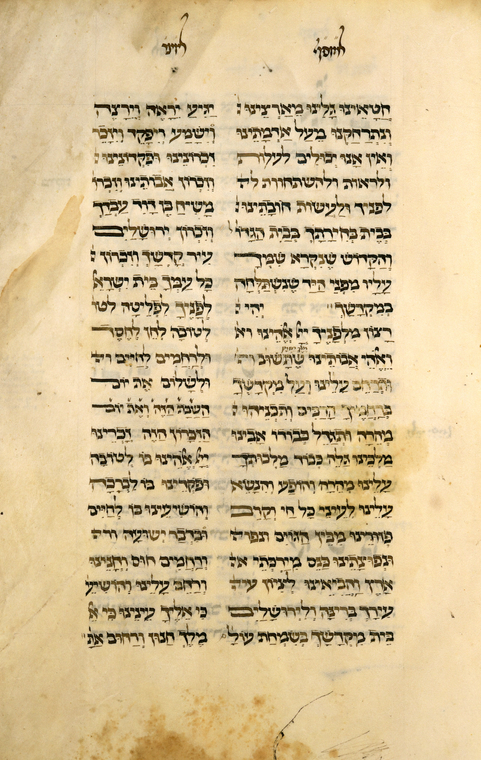 חטאינו גלינו מארצינו
ונתרחקנו מעל אדמתינו
ואין אנו יכולים לעלות
ולראות ולהשתחוות לפ
לפניך ולעשות חובתינו
בבית בחירתך בבית הגדו
והקדוש שנקרא שמך
עליו מפני היד שנשתלחה
במקדשך יהי
רצון מלפניך אלהינו וא
ואלהי אבותינו שתשוב ות
ותרחם עלינו ועל מקדשך
ברחמיך הרבים ותבניהו
מהרה ותגדל כבודו אבינו
מלכינו גלה כבוד מלכותך
עלינו מהרה והופע והנשא
עלינו לעיני כל חי וקרב
פזורינו מבין הגוים ונפו
ונפוצתינו כנס מירכתי א
ארץ והביאינו לציון עיר
עירך ברינה ולירושלים
בית מקדשך בשמחת עול
יגיע יראה וירצה
וישמע ויפקד ויזכר
זכרונינו ופקדונינו
וזכרון אבותינו וזכרו
משיח בן דוד עבדך
וזכרון ירושלים
עיר קדשך וזכרון
כל עמך בית ישרא
לפניך לפליטה לטו
לטובה לחן לחסד
ולרחמים לחיים ול
ולשלום את יום
השבת הזה ואת יום
הזכרון הזה זכרינו
אלהינו בו לטובה
ופקדינו בו לברכה
והושיעינו בו לחיים
ובדבר ישועה ור
ורחמים חוס וחנינו
ורחם עלינו והושיע
כי אליך עינינו כי א
מלך חנון ורחום את